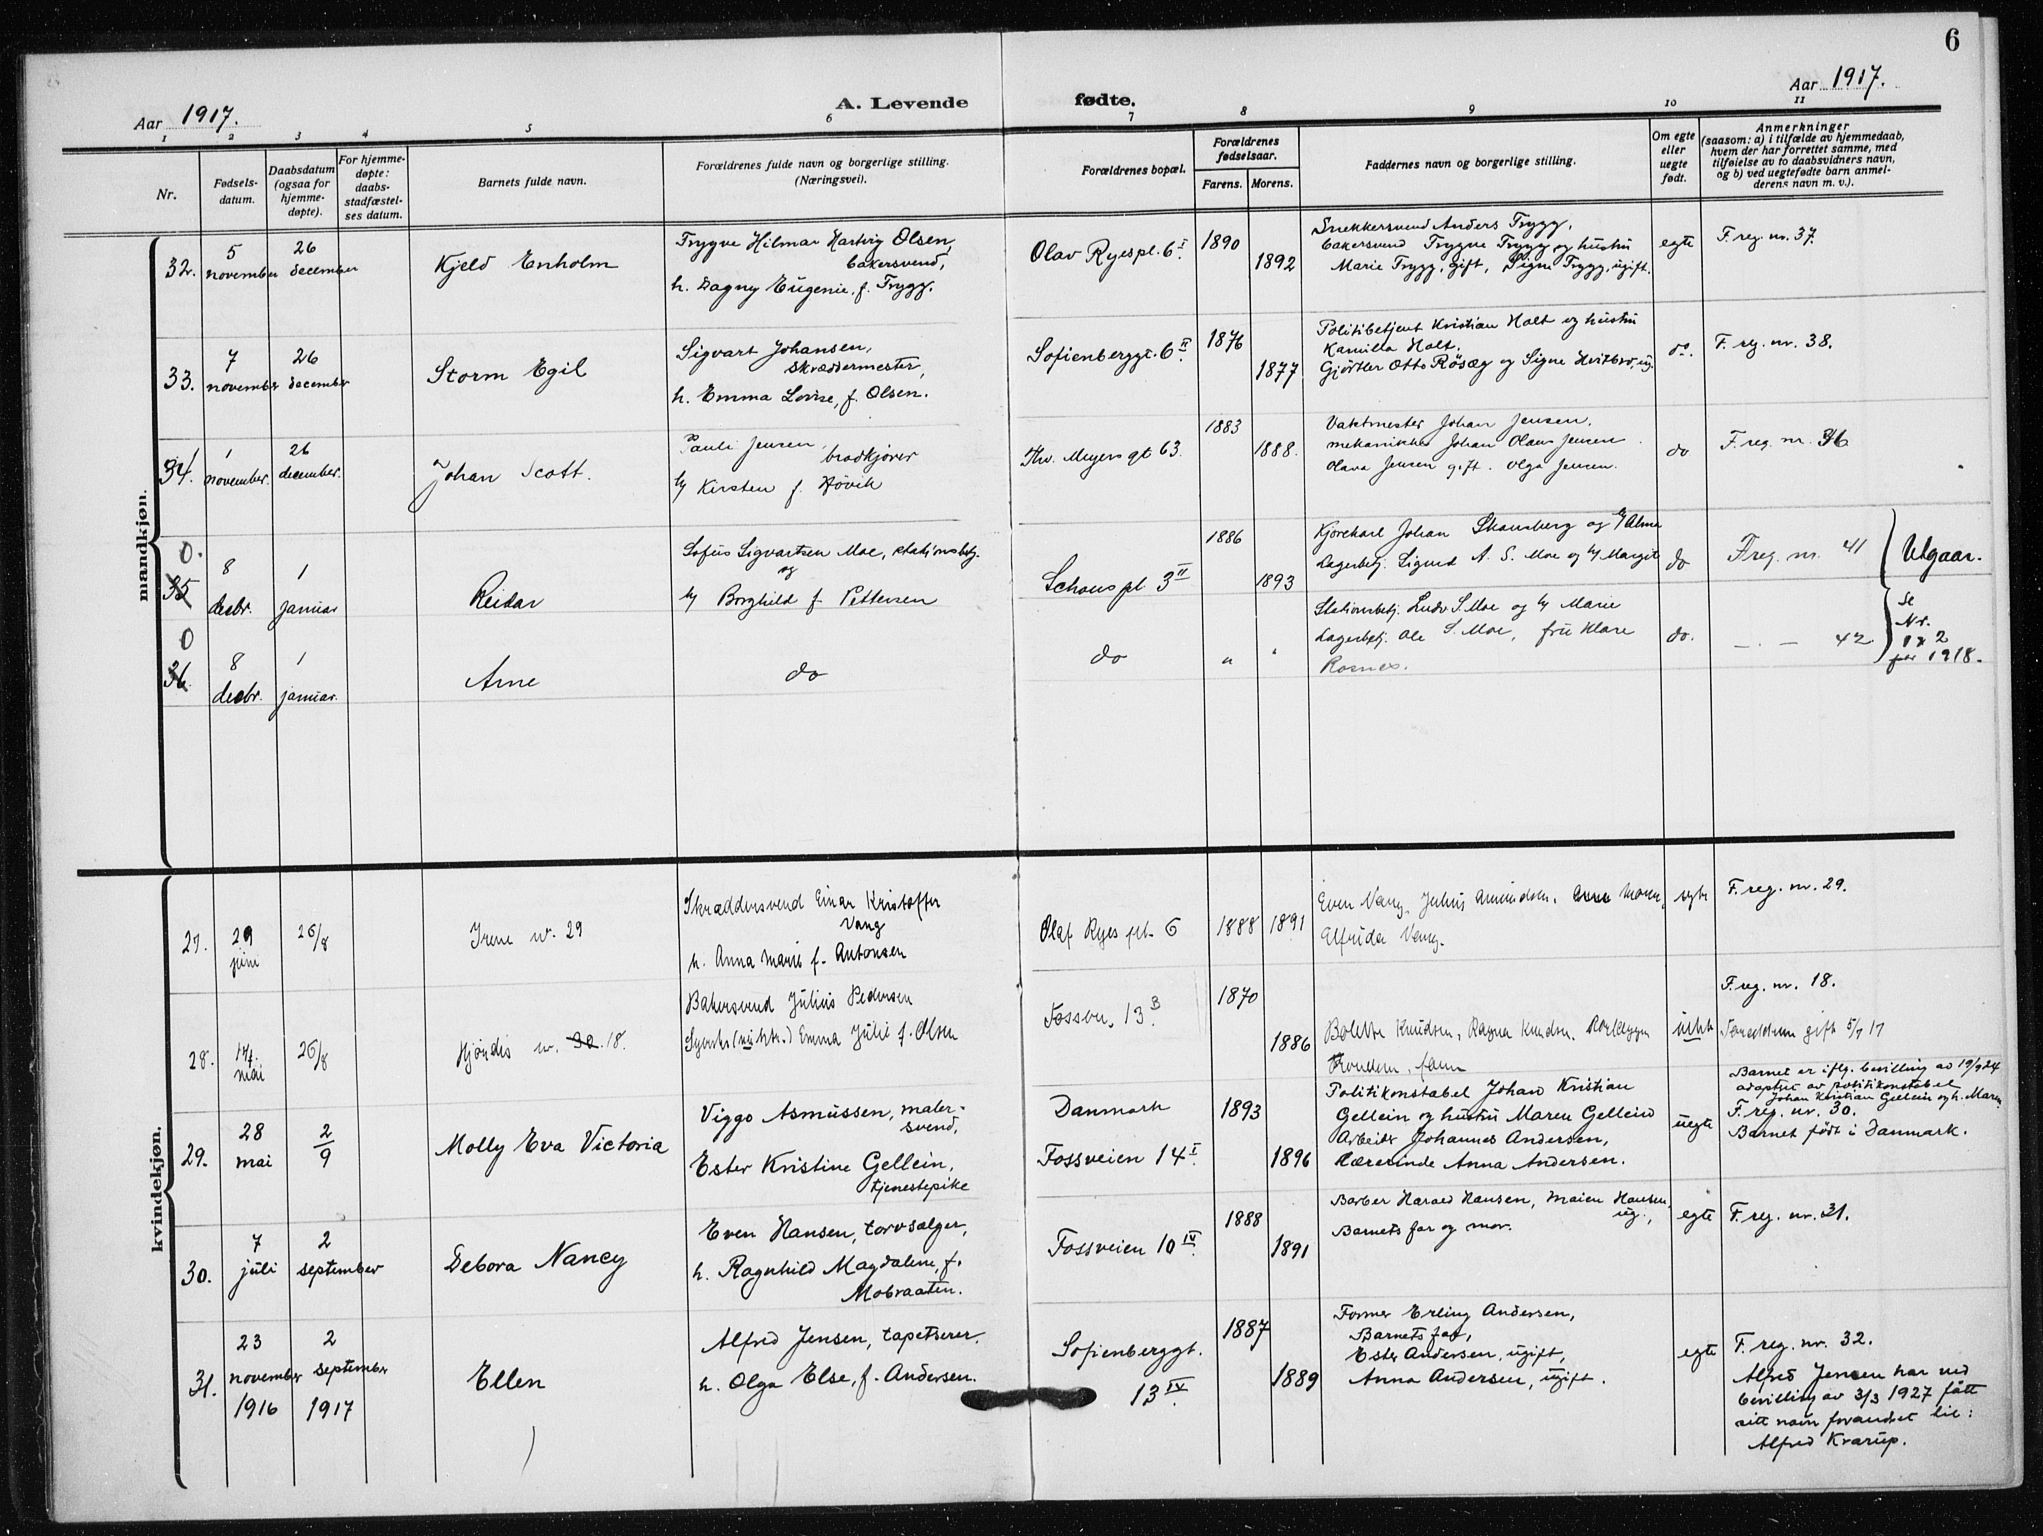 6
Aar 1917.
A. Levende fødte.
Aar 1917.
1 2 3 4 5 6 7 8 9 10 11
Nr.
Fødsels-
datum.
Daabsdatum
(ogsaa for
hjemme-
døpte).
For hjemme-
døpte:
daabs-
stadfæstel-
ses datum.
Barnets fulde navn.
Forældrenes fulde navn og borgerlige stilling.
(Næringsvei).
Forældrenes bopæl.
Forældrenes
fødselsaar.
Farens. Morens.
Faddernes navn og borgerlige stilling.
Om egte
eller
uegte
født.
Anmerkninger
(saasom: a) i tilfælde av hjemmedaab,
hvem der har forrettet samme, med
tilføielse av to daabsvidners navn,
og b) ved uegtefødte barn anmel-
derens navn m. v.).
mandkjøn.
32.
5
november
26
december
Kjeld Enholm
Trygve Hilmar Hartvig Olsen,
bakersvend,
h. Dagny Eugenie, f. Trygg.
Olav Ryespl. 6 I
1890
1892
Snekkersvend Anders Trygg,
bakersvend Trygve Trygg og hustru
Marie Trygg, gift, Signe Trygg, ugift.
egte
F. reg. nr. 37.
33.
7
november
26
december
Storm Egil
Sigvart Johansen,
skræddermester,
h. Emma Lovise, f. Olsen.
Sofienberggt. 6 II
1876
1877
Politibetjent Kristian Holt og hustru
Kamilla Holt,
Gjørtler Otto Røsæg og Signe
do.
F. reg. nr. 38.
34.
1
november.
26
december.
Johan Scott.
Pauli Jensen,
brødkjører
h/ Kirsten f. Høvik
Thv. Meyers gt 63.
1883
1888.
Vaktmester Johan Jensen,
mekaniker Johan Olaus Jensen
Olava Jensen gift. Olga Jensen.
do
F. reg. nr. 36
0.
35
8
desbr.
1
januar
Reidar
Sofus Sigvartsen Moe, stationsbetj.
og
h/ Borghild f. Pettersen
Schous pl. 3 II
1886
1893
Kjørekarl Johan Skansberg og h/ Alma
Lagerbetj. Sigurd A. S. Moe og h/ Margit
do
F. reg. nr. 41
Utgaar.
Se
Nr.
1 & 2
for 1918.
0
36.
8
desbr.
1
januar.
Arne
do
do
"
"
Stationsbetj. Ludv. S. Moe og h/ Marie
Lagerbetj. Ole S. Moe, fru Klara
do.
— . — 42
kvindekjøn.
27.
29
juni
26/8
Irene nr. 29
Skræddersvend Einar Kristoffer
Vang
h. Anna Marie f. Antonsen
Olaf Ryes pl. 6
1888
1891
Even Vang, Julius Amundsen, Anna
Elfrida Vang.
egte
F. reg. nr. 29.
28.
14.
mai
26/8
Hjørdis nr. 30. 18.
Bakersvend Julius Pedersen
Emma Julie f. Olsen
Fossv. 13 B
1870
1886
Bolette Knudsen, Ragna Knudsen,
F. reg. nr. 18.
Foreldrene gift 5/9 17
29.
28
mai
2
9
Molly Eva Victoria
Viggo Asmussen, maler-
svend,
Ester Kristine Gellein,
tjenestepike
Danmark
Fossveien 14 I.
1893
1896
Politikonstabel Johan Kristian
Gellein og hustru Maren Gellein
Arbeider Johannes Andersen,
Lærerinde Anna Andersen.
uegte
Barnet er iflg. bevilling av 19/9 24
adoptert av politikonstabel
Johan Kristian Gellein og h. Maren
F. reg. nr. 30.
Barnet født i Danmark.
30.
7
juli
2
september
Debora Nancy
Even Hansen, torvsælger,
h. Ragnhild Magdalene, f.
Mobraaten.
Fossveien 10 IV.
1888
1891
Barber Harald Hansen, Maien Hansen,
ug.,
Barnets far og mor.
egte
F. reg. nr. 31.
31.
23
november
1916
2
september
1917
Ellen
Alfred Jensen, tapetserer.
h. Olga Else, f. Andersen.
Sofienberggt.
13 IV.
1887
1889
Former Erling Andersen,
Barnets far,
Ester Andersen, ugift,
Anna Andersen, ugift.
egte
F. reg. nr. 32.
Alfred Jensen har ved
bevilling av 3/3 1927 fått
sitt navn forandret til:
Alfred Krarup.